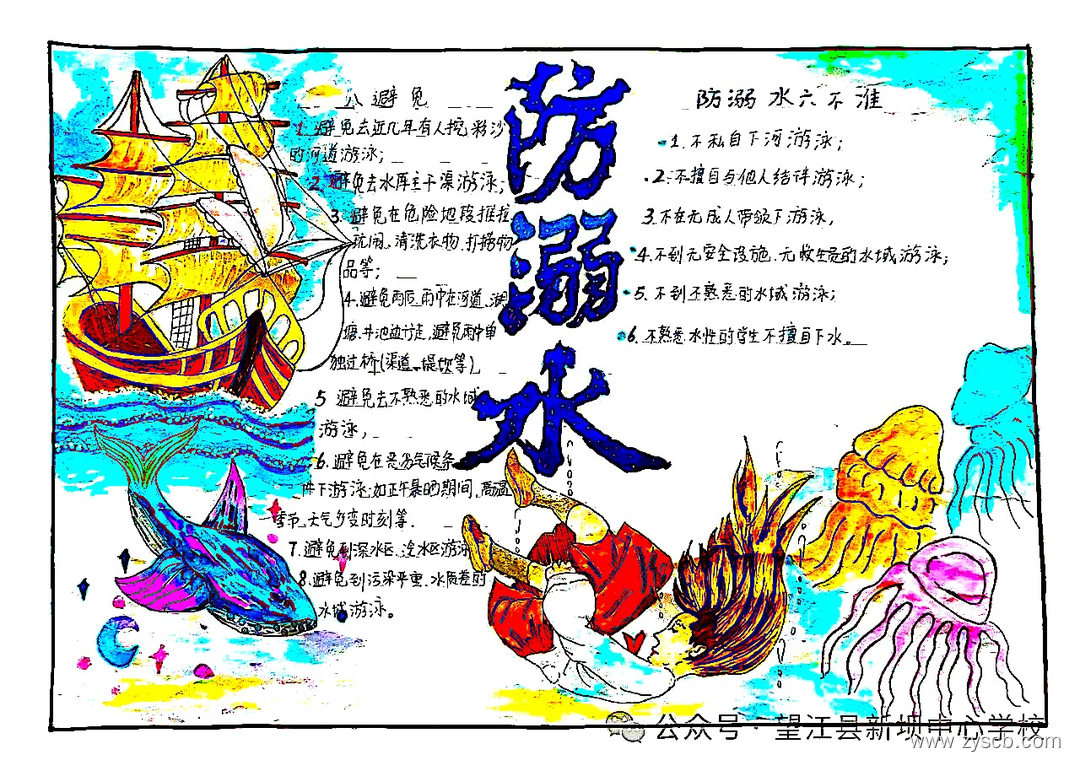 八避免
1.避免去近几年有人挖、彩沙
的河道游泳;
2.避免去水库主干渠游泳;
3.避免在危险地段推拉
玩闹、清洗衣物、打捞物
品等;
4.避免雨后、雨中在河道、湖
塘、井池边行走,避免雨中单
独过桥(渠道、堤坎等)
5避免去不熟悉的水域
游泳,
6.避免在恶劣气候条
件下游泳:如正午暴晒期间、高温
季节、天气多变时刻等.
7.避免到深水区、没水区游泳
8.避免到污染严重、水质差的
水域游泳。
防溺水
防溺水六不准
1.不私自下河游泳;
2.不擅自与他人结伴游泳;
3.不在无成人带领下游泳,
4.不到无安全设施、无救生员的水域游泳;
5.不到不熟悉的水域游泳;
6.不熟悉水性的学生不擅自下水。
公众号·望江县新坝中心学校
www.zyscb.com